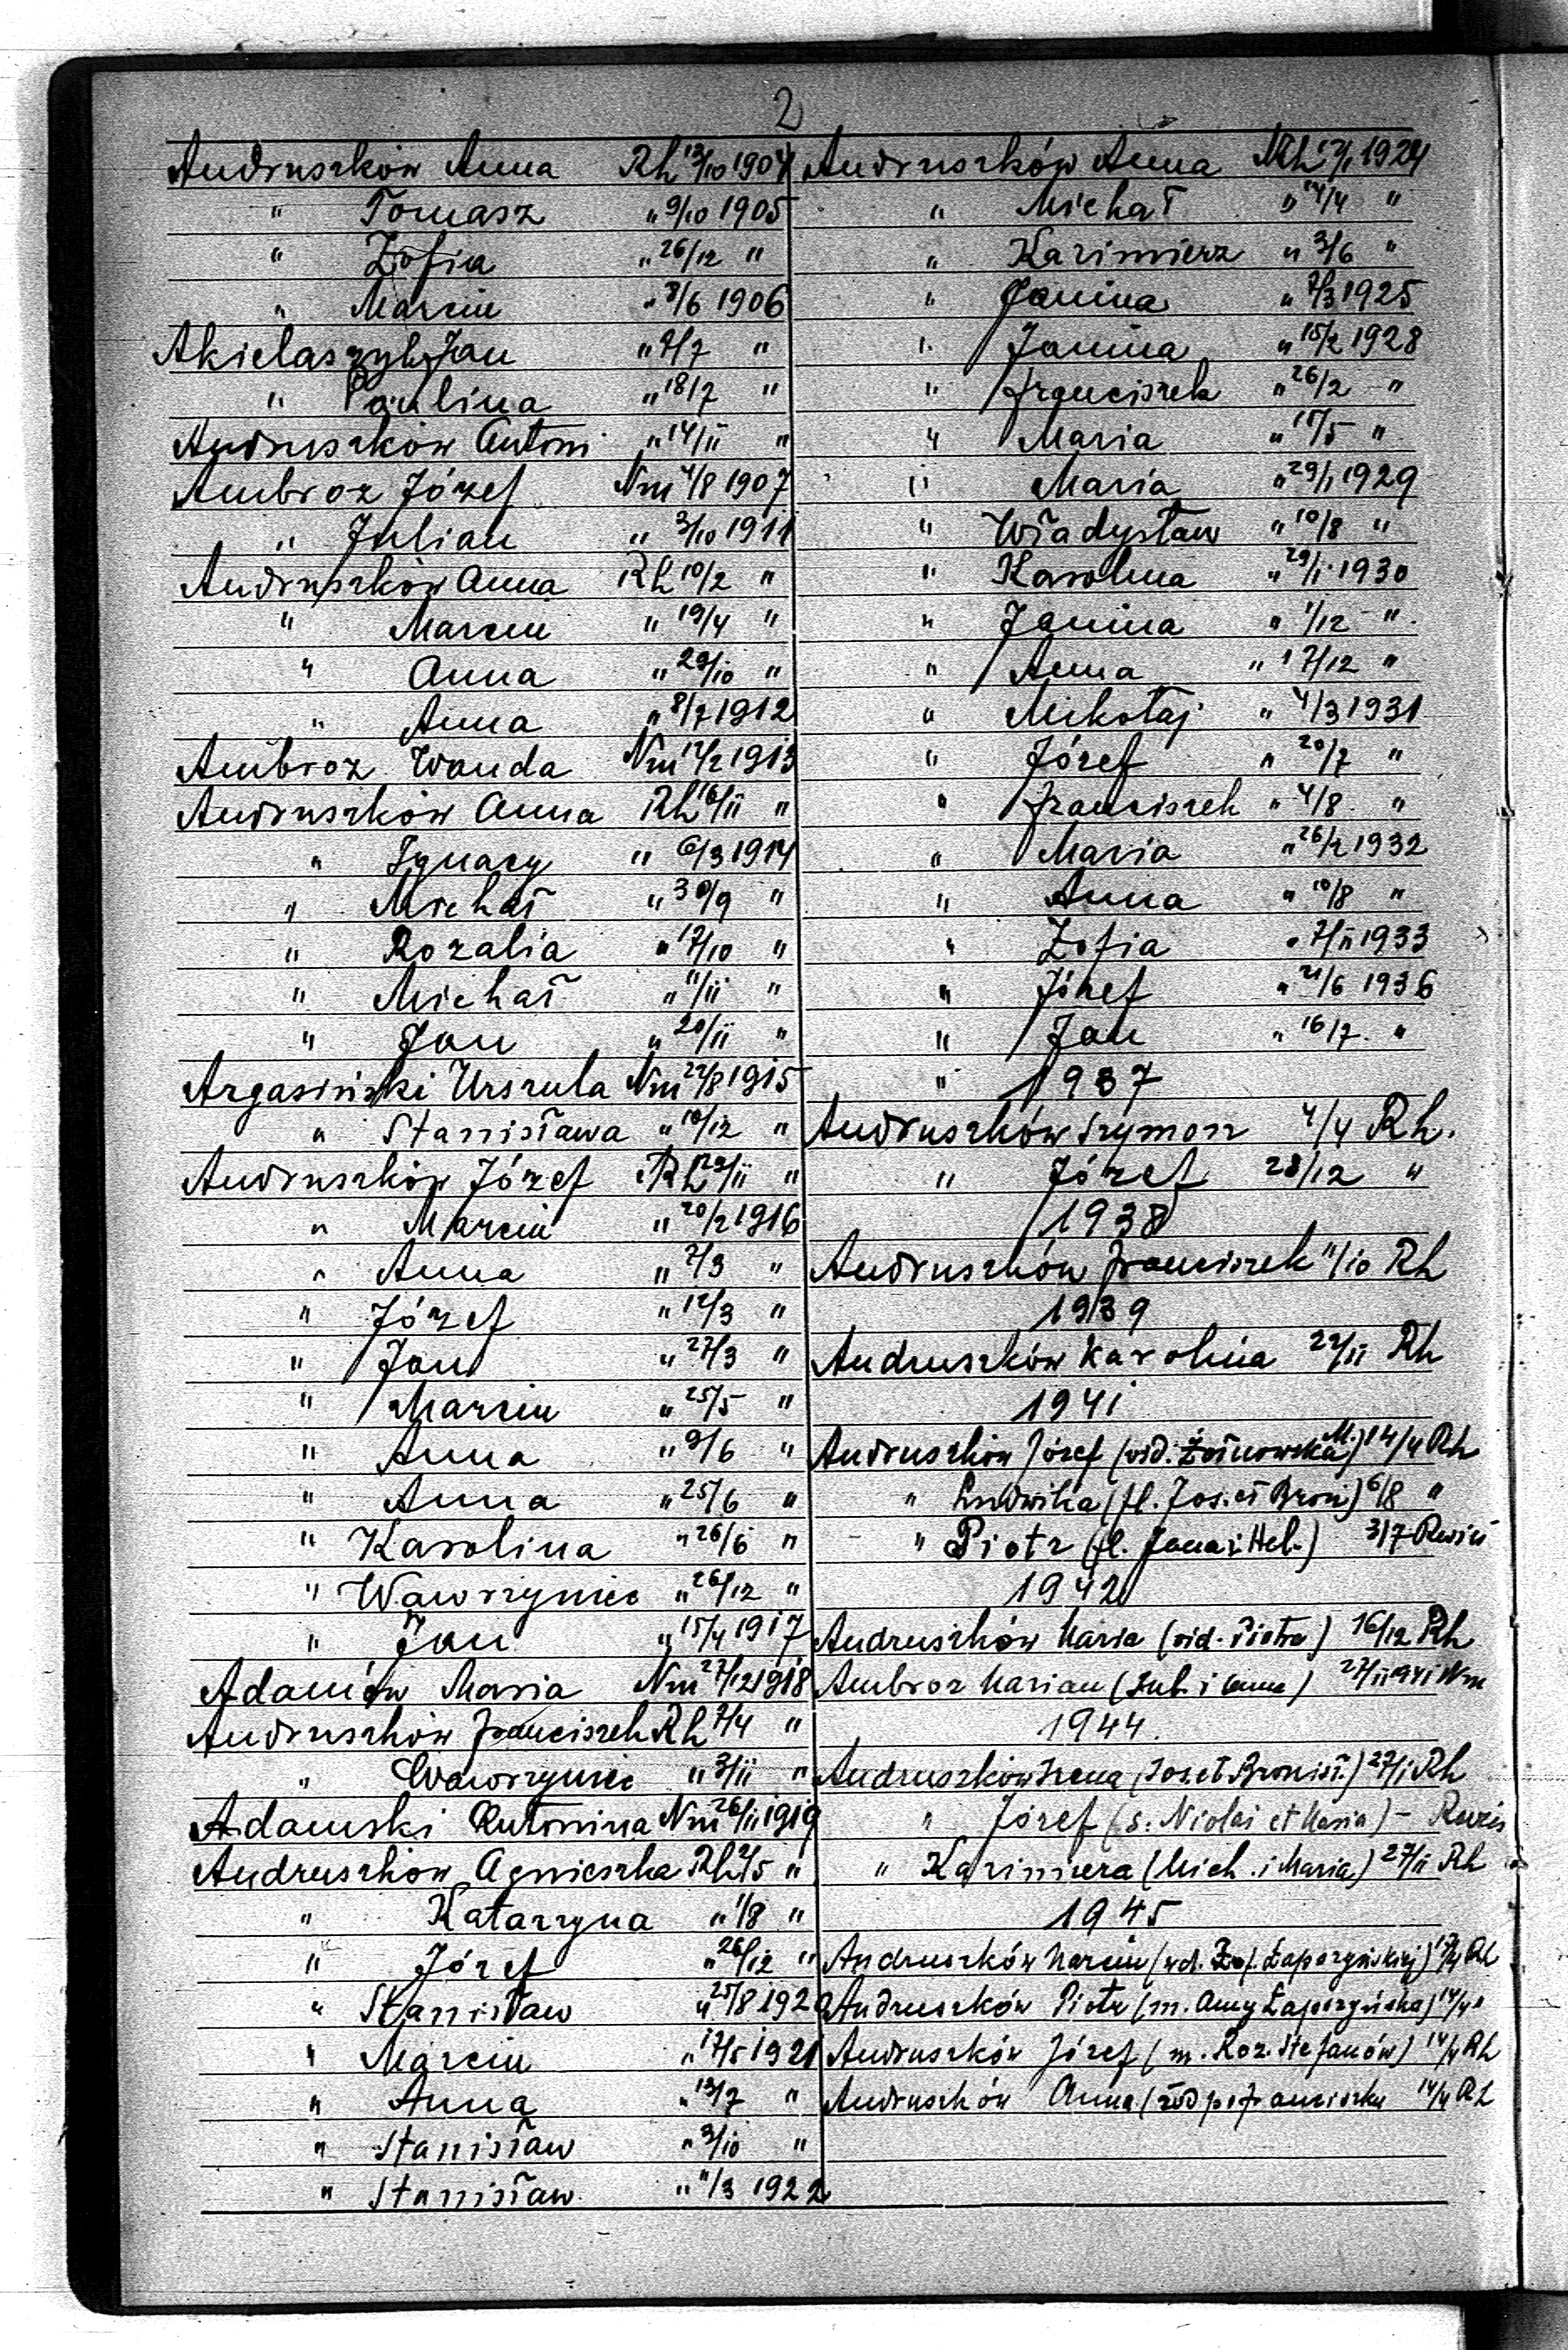 2
Andruszków Anna Rh 13/10 1904
" Tomasz " 9/10 1905
" Zofia " 26/12 "
" Marcin " 8/6 1906
Akielaszyk Jan " 7/7 "
" Paulina " 18/7 "
Andruszków Antoni " 14/II "
Ambroz Józef Nm 4/8 1907
" Julian " 3/10 1911
Andruszków Anna Rh 10/2 "
" Marcin " 19/4 "
" Anna " 29/10 "
" Anna " 8/7 1912
Ambroz Wanda Nm 12/2 1913
Andruszków Anna Rh 16/II "
" Ignacy " 6/3 1914
" Michał " 30/9 "
" Rozalia " 17/10 "
" Michał " 11/II "
" Jan " 20/II "
Argasiński Urszula Nm 22/8 1915
" Stanisława " 10/12 "
Andruszków Józef Rh 29/II "
" Marcin " 20/2 1916
" Anna " 7/3 "
" Józef " 12/3 "
" Jan " 27/3 "
" Marcin " 25/5 "
" Anna " 9/6 "
" Anna " 25/6 "
" Karolina " 26/6 "
" Wawrzyniec " 26/12 "
" Jan " 15/4 1917
Adamów Maria Nm 27/12 1918
Andruszków Franciszek Rh 7/4 "
" Wawrzyniec " 3/II "
Adamski Antonina Nm 26/II 1919
Andruszków Agnieszka Rh 2/5 "
" Katarzyna " 1/8 "
" Józef " 26/12 "
" Stanisław " 25/8 1920
" Marcin " 17/5 1921
" Anna " 13/7 "
" Stanisław " 3/10 "
" Stanisław " 11/3 1922
Andruszków Anna Rh 17/1 1924
" Michał " 14/4 "
" Kazimierz " 3/6 "
" Janina " 7/3 1925
" Janina " 15/2 1928
" Franciszek " 26/2 "
" Maria " 15/5 "
" Maria " 29/1 1929
" Władysław " 10/8 "
" Karolina " 29/1 1930
" Janina " 1/12 "
" Anna " 17/12 "
" Mikołaj " 4/3 1931
" Józef " 20/7 "
" Franciszek " 4/8 "
" Maria " 26/2 1932
" Anna " 10/8 "
" Zofia " 7/II 1933
" Józef " 21/6 1936
" Jan " 16/7 "
" 1937
Andruszków Szymon 4/4 Rh.
" Józef 28/12 "
1938
Andruszków Franciszek 11/10 Rh
1939
Andruszków Karolina 22/II Rh
1941
Andruszków Józef (wid. M.) 14/4 Rh
" Ludwika (fl. Jos. et Bron) 6/8 "
" Piotr (fl. Jana i Hel.) 3/7
1942
Andruszków Maria (wid. Piotra) 16/12 Rh
Ambroz Marian (Jul. i Anna) 27/II 941 Nm
1944.
Andruszków Irena (Jos. et Bronisł.) 27/1 Rh
" Józef (s. Nicolai et Maria) -
" Kazimiera (Mich. i Maria) 27/II Rh
1945
Andruszków Marcin (wd. Zof. Zaporzyńskiej) Rh
Andruszków Piotr (m. Anny Zaporzyńska) 14/4 "
Andruszków Józef (m. Roz. Stefanów) 14/4 Rh
Andruszków Anna Franciszku 14/4 Rh